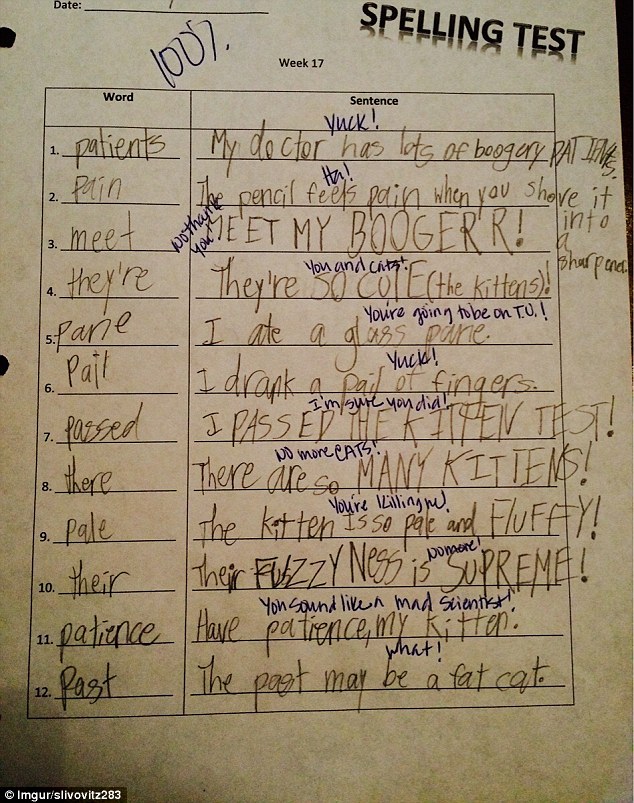 Date:
SPELLING TEST
100%.
Week 17
Word Sentence
Yuck!
1. patients My doctor has lots of boogery PATIENTS.
Ha!
2. pain The pencil feels pain when you shove it into a sharpener.
No thank you!
3. meet MEET MY BOOGERR!
You and cats!
4. they're They're SO CUTE (the kittens)!
You're going to be on T.V.!
5. pane I ate a glass pane.
Yuck!
6. Pail I drank a pail of fingers.
I'm sure you did!
7. passed I PASSED THE KITTEN TEST!
No more CATS!
8. there There are so MANY KITTENS!
You're killing me!
9. pale The kitten is so pale and FLUFFY!
No more!
10. their Their FUZZYNess is SUPREME!
You sound like a mad scientist!
11. patience Have patience, my kitten.
What!
12. Past The past may be a fat cat.
© Imgur/slivovitz283